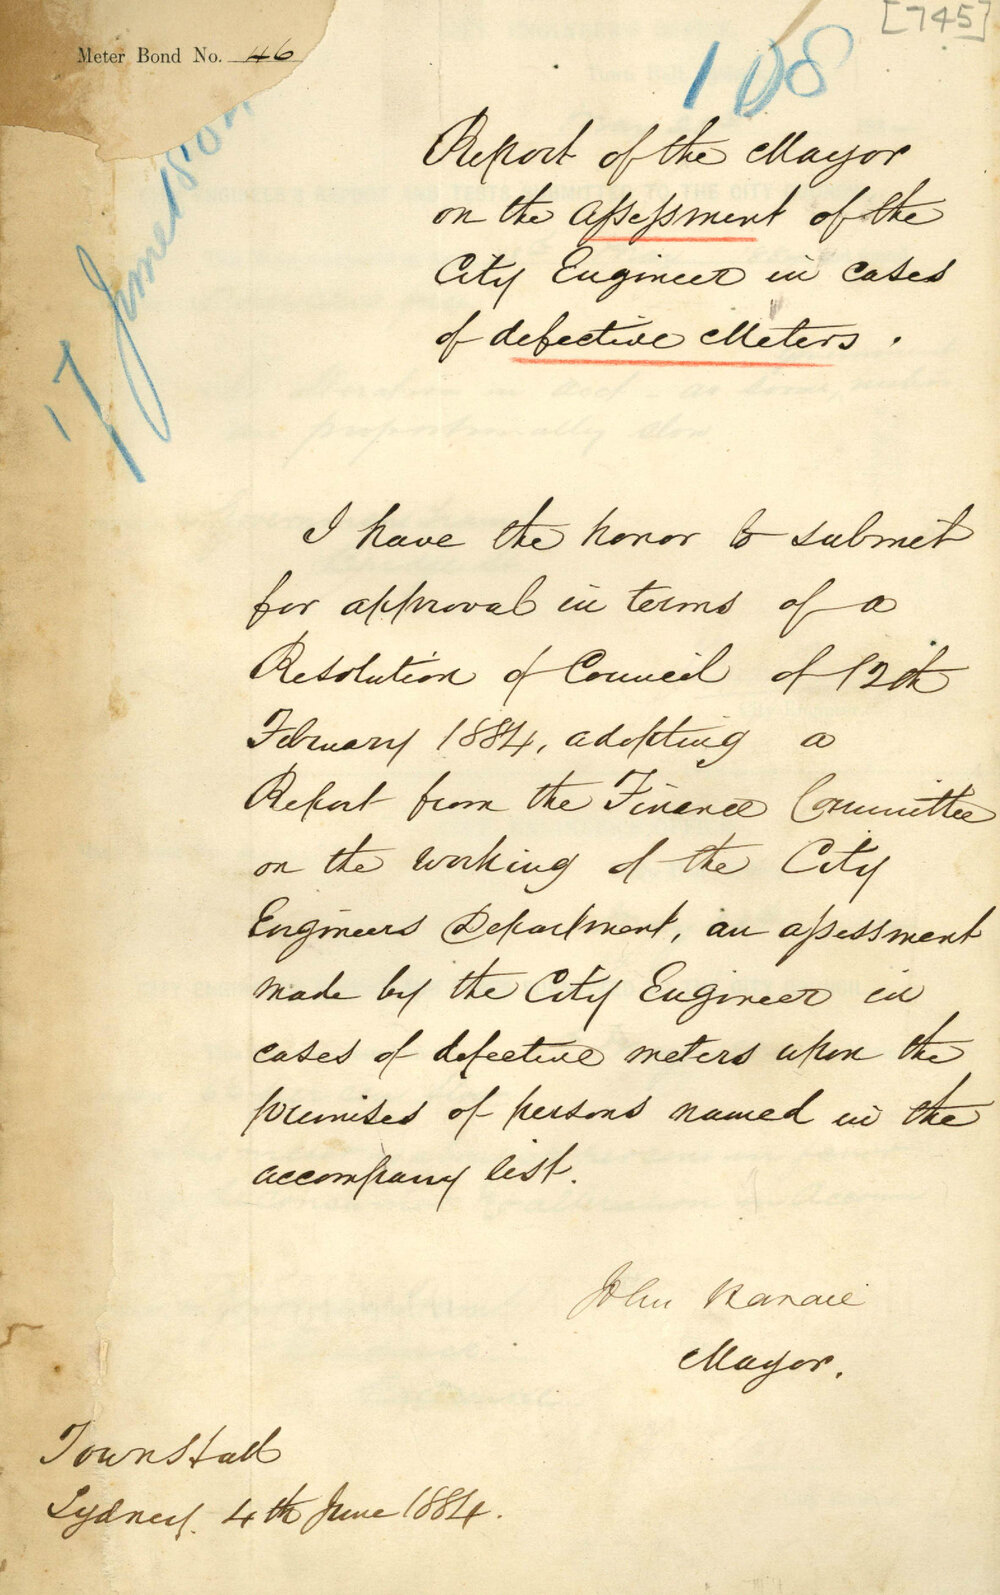 [745]
Meter Bond No. 46
108
17 June 1
Report of the Mayor
on the assessment of the
City Engineer in cases
of defective Meters.
I have the honor to submit
for approval in terms of a
Resolution of Council of 12th
February 1884, adopting a
Report from the Finance Committee
on the working of the City
Engineers Department, an assessment
made by the City Engineer in
cases of defective meters upon the
premises of persons named in the
accompany list.
John
Mayor.
Townshall
Sydney. 4th June 1884.